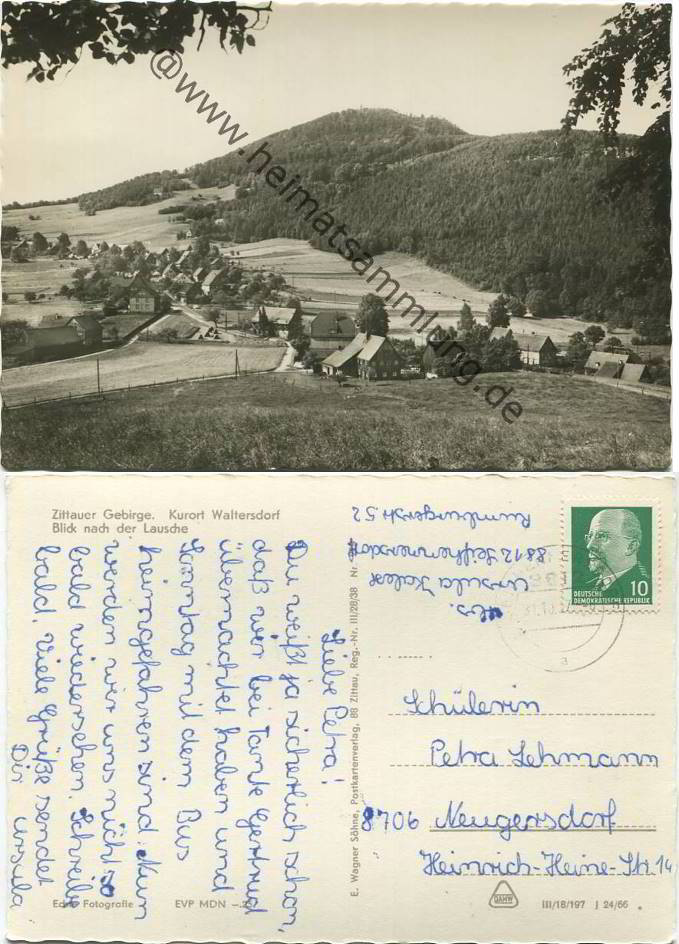 @www.heimatsammlung.de
Zittauer Gebirge. Kurort Waltersdorf
Blick nach der Lausche
Liebe Petra!
Du weißt ja sicherlich schon,
daß wir bei Tante Gertrud
übernachtet haben und
Sonntag mit dem Bus
heimgefahren sind. Nun
werden wir uns nicht so
bald wiedersehen. Schreibe
bald. Viele Grüße sendet
Dir Ursula
Echte Fotografie
EVP MDN -.25
E. Wagner Söhne, Postkartenverlag, 88 Zittau, Reg.-Nr. III/28/38 Nr.
Abs.
Ursula
8812 Seifhennersdorf
Rumburgerstr. 52
10
DEUTSCHE
DEMOKRATISCHE REPUBLIK
Schülerin
Petra Lehmann
8706 Neugersdorf
Heinrich-Heine-Str. 14
DAHW
III/18/197 J 24/66